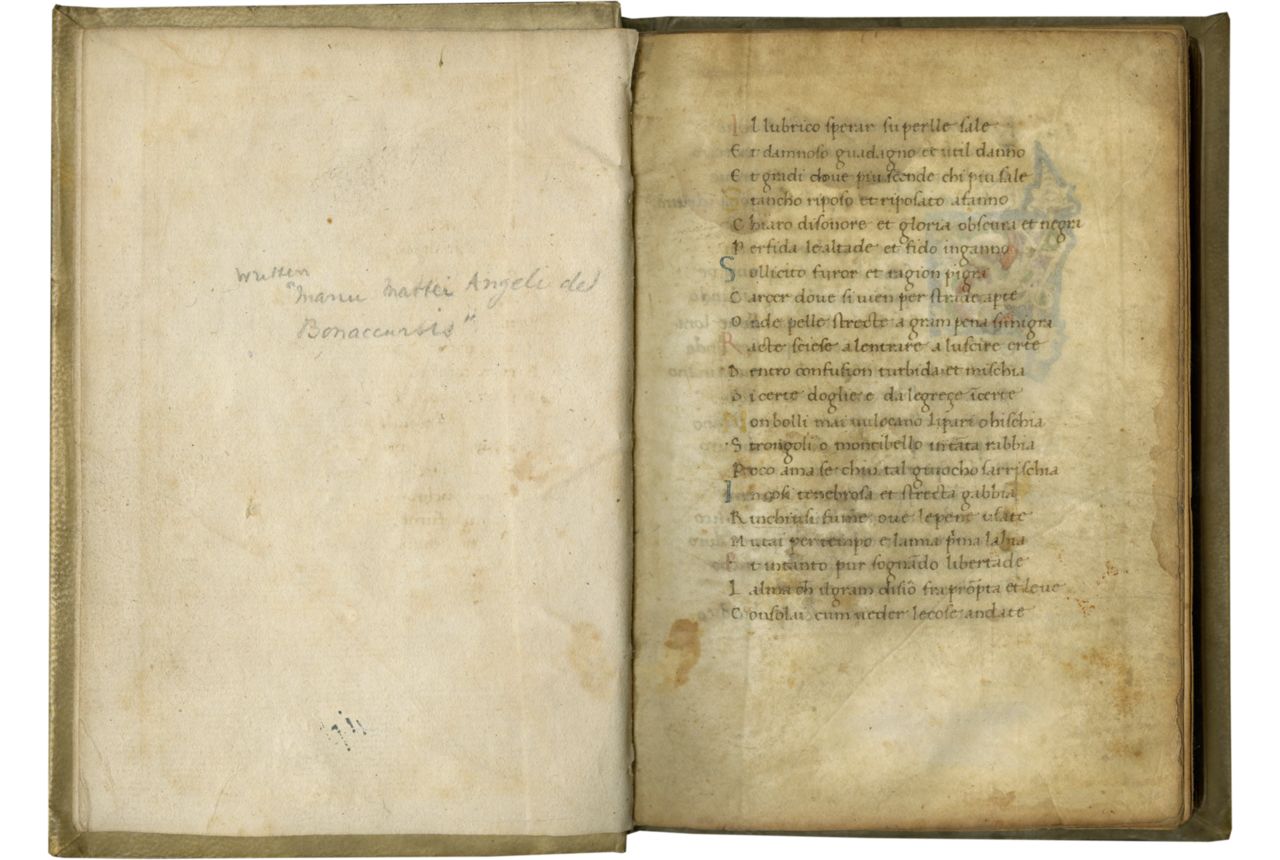 Written
"Manu Mattei Angeli de
Bonaccursis"
Il lubrico sperar su perlle sale
Et damnoso guadagno et util danno
Et gradi doue piu scende chi piu sale
Stancho riposo et riposato afanno
Chiaro disonore et gloria obscura et negra
Perfida lealtade et fido inganno
Sollicito furor et ragion pigra
Carcer doue si uien per strade apte
Onde pelle strecte a gram pena simigra
Racte sciese alentrare a luscire erte
Dentro confusion turbida et mischia
Di certe doglie e dalegreçe īcerte
Non bolli mai uulocano lipari ohischia
Strongoli o montibello intāta rabbia
Poco ama se chiu tal giuocho sarrischia
In cosi tenebrosa et strecta gabbia
Rinchiusi fume oue lepene usate
Mutai per tempo e lamia pͥma labia
Et intanto pur sognādo libertade
Lalma ch ilgram disiō fa prōpta et leue
Consolai cum ueder lecose andate